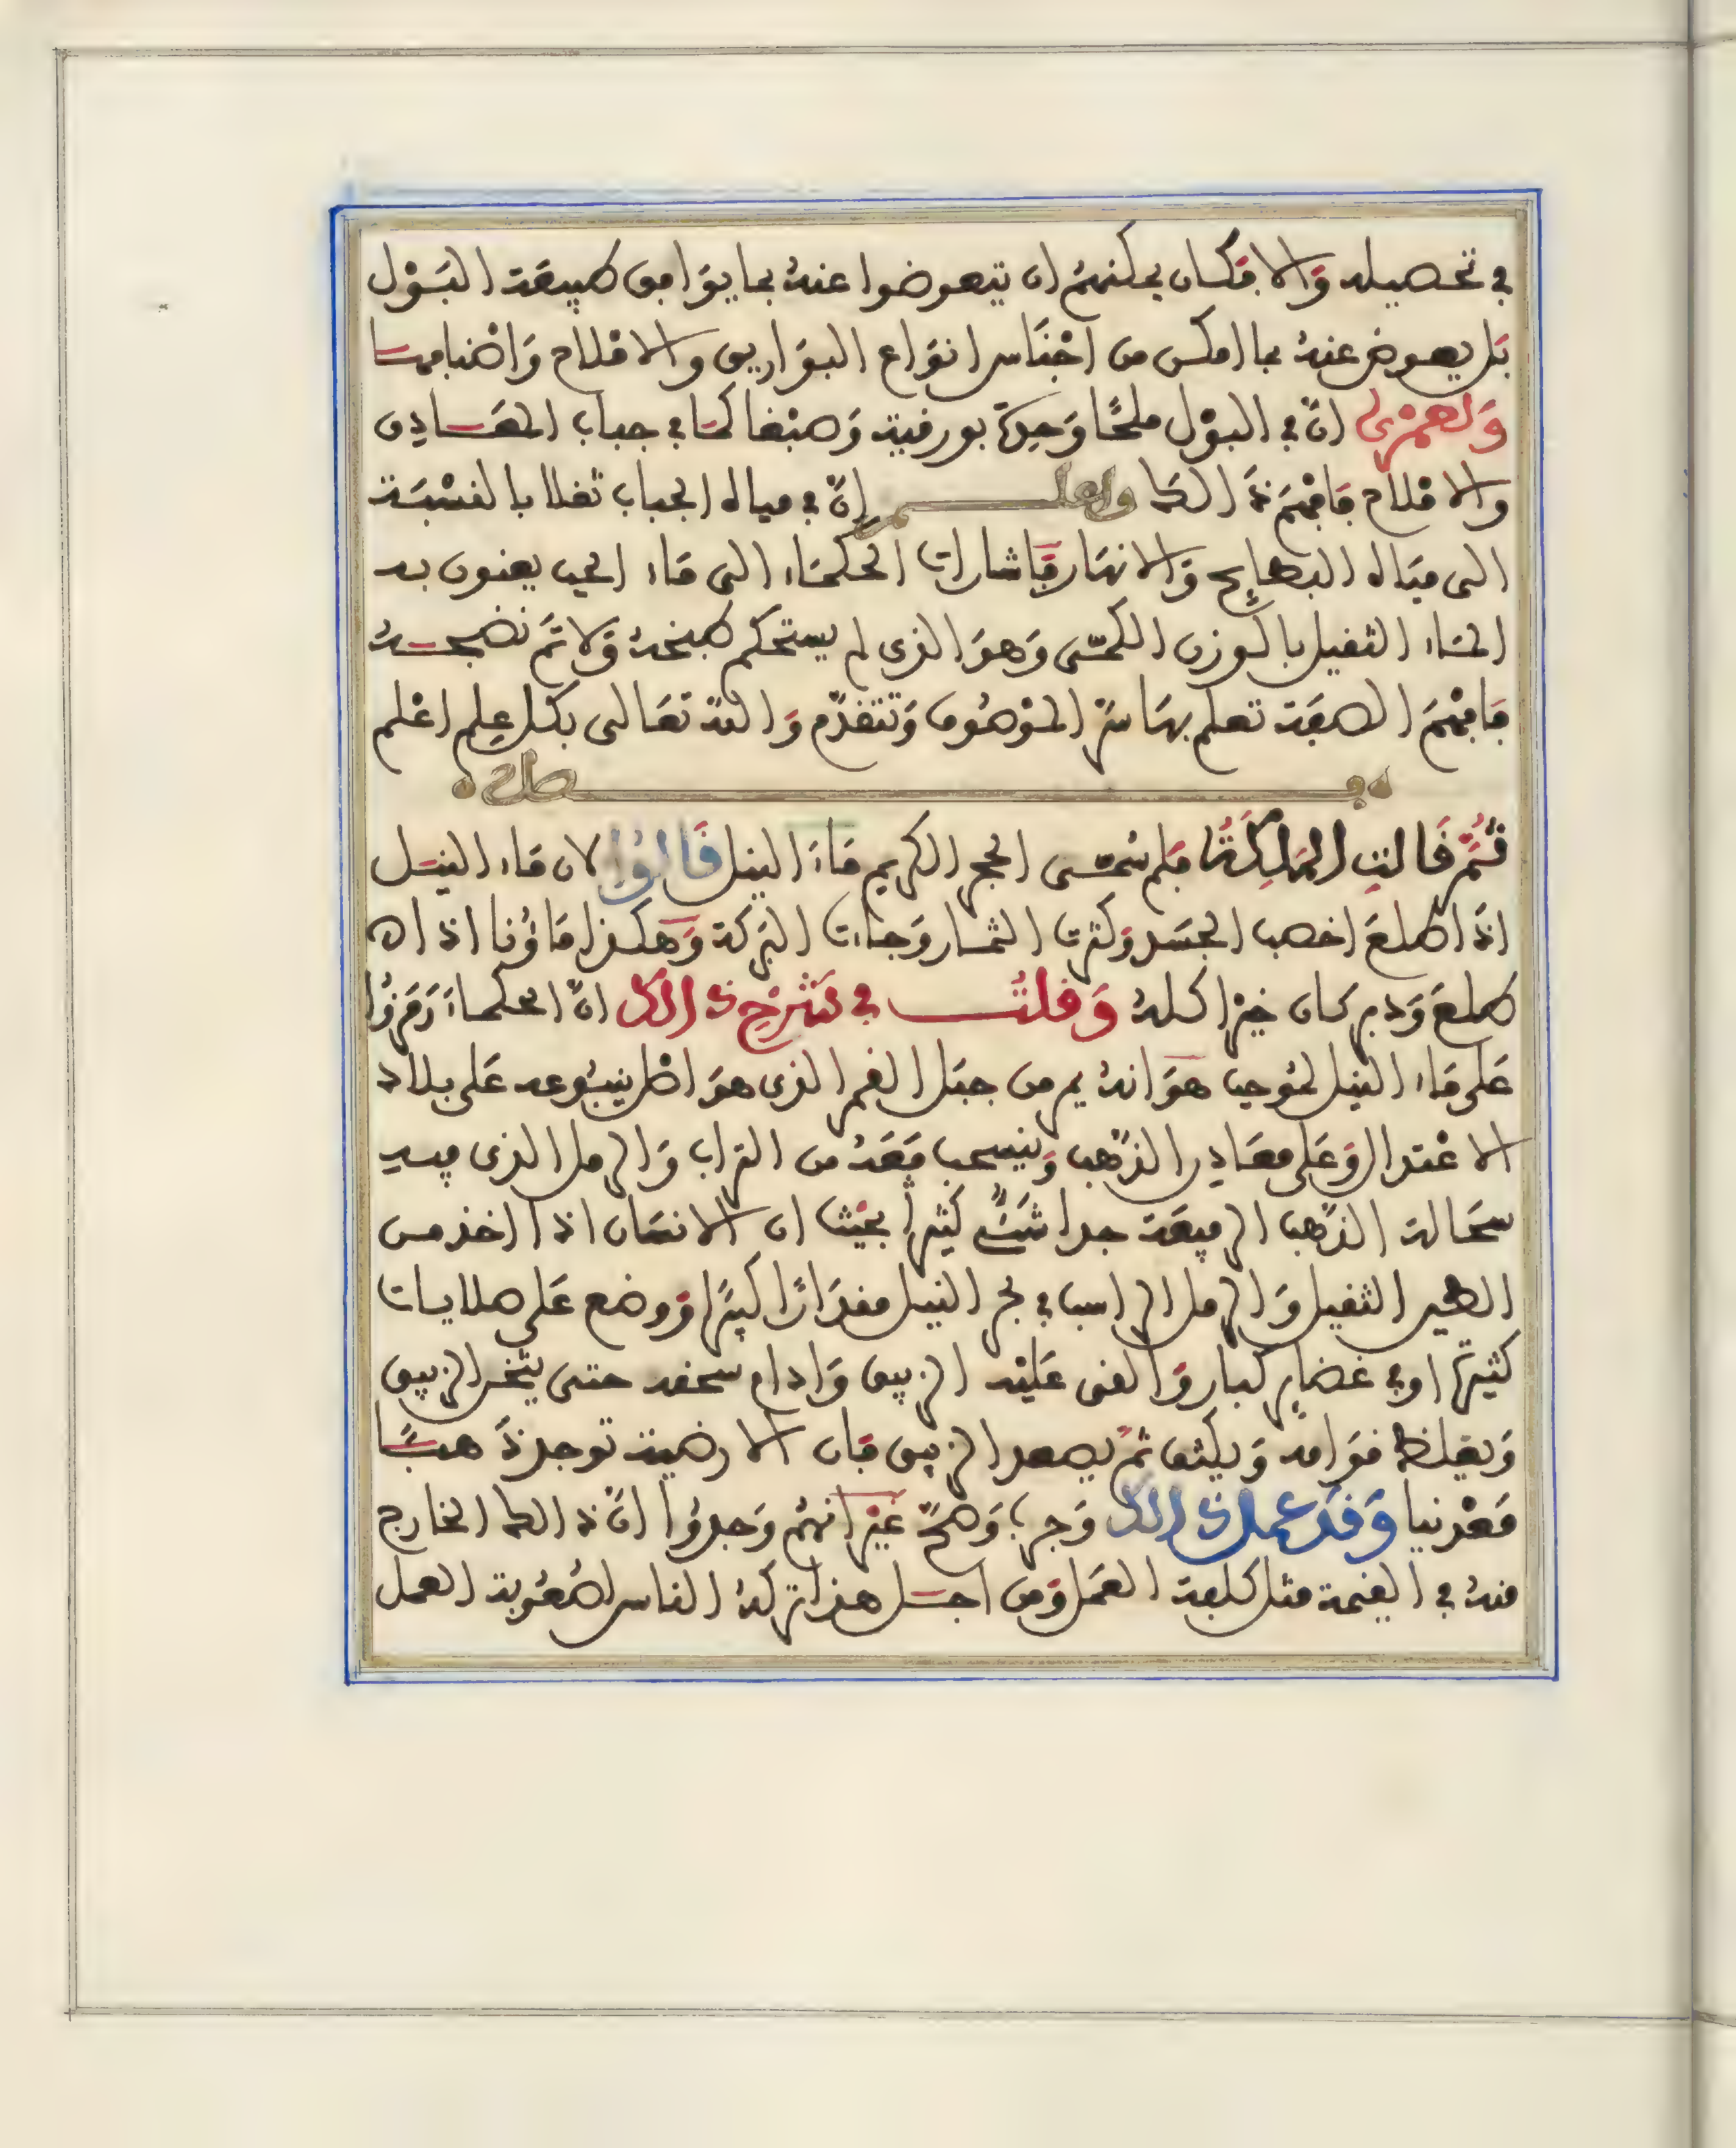 في تحصيله وَالا فكان يمكنهمُ ان يتعوضوا عنهُ بما يوَافق طبيعَة البَوْل
بَل يعوض عنهُ بما امكن من اجْنَاس انوَاع البوَاريق والامْلاح وَاصْنافها
وَلعمْرى انّ في البوْل ملحًا وَحِدّة بورقية وَصبْغا كمَا في جباب المعَادِن
والامْلاح فافهَمْ ذَالك واعلم انّ في مياه الجباب ثقلا بالنسْبَة
الى ميَاه البطايح وَالانهَار فاشارات الحكمَاء الى مَاء الجب يعنون به
المَاء الثقيل بالوزن الكمّى وَهوَ الذى لم يستحكم طبخهُ وَلا تمَّ نضجهُ
فافهَمْ الصفَة تعلم بهَا سرّ الموْصُوف وَتتقدّم وَاللّه تعَالى بكل علِم اعْلم
فصل
ثُمَّ قَالَتِ المَلِكَةُ فلم سُمّى الحجر الكريم مَاءَ النيل قَالوُا لان مَاء النيل
اذَا طلعَ اخصب الجسَد وَكثرت الثمار وَجاءت البَركة وَهكذا مَاؤنا اذا
طلعَ وَدبر كان خيْرا كلهُ وَقلتُ في شَرْحِ ذَالك انّ الحكماءَ رَمَزُوا
عَلى مَاء النيل لمُوجب هوَ انهُ يمر من جبَل القمر الذى هوَ اصْل ينبُوعه عَلى بلاد
الاعْتدال وَعَلى معَادِن الذّهب وَينسحب مَعَهُ من التراب وَالرمل الذى فيه
سحَالة الذّهب الرفيعَة جدا شَئٌ كثيرٌ بحيْث ان الانسَان اذا اخذ من
الطين الثقيل وَالرمل الراسب في بحر النيل مقدَارًا كبيرًا وَوضع عَلى صلايات
كثيرة او في غضاير كبار وَالقى عَليْه الزيبق وَادام سحقه حتى يثخن الزيبق
وَيغلظ قوَامه وَيكثف ثمّ يصعد الزيبق فان الارضية توجد ذَهبًا
مَعْدنيا وَقدْ عمل ذَالك وَجرب وَصَحّ غيْر انهُم وَجدوُا انّ ذالك الخارج
منهُ في القيمة مثل كلفة العَمل وَمن اجل هذا تركهُ الناس لصُعُوبة العمل